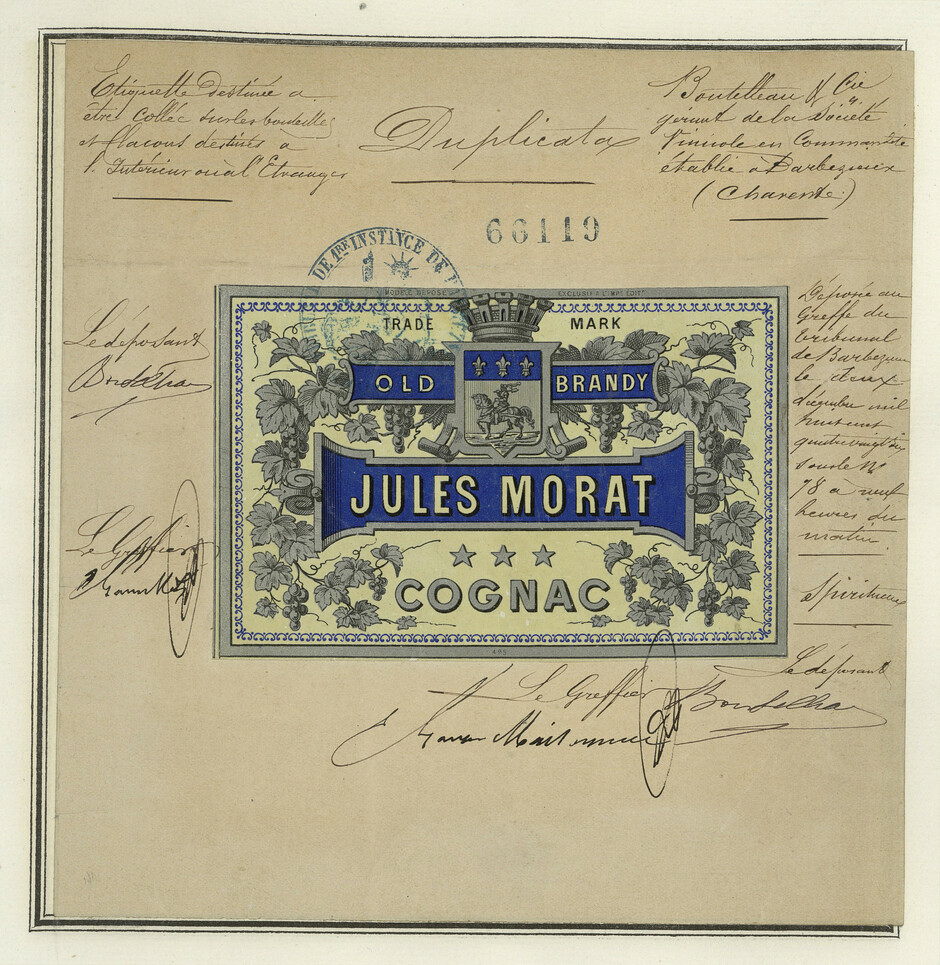 Etiquette destinée a
être Collée sur les bouteilles
et flacons destinés a
l'Intérieur ou à l'Etranger
Duplicata
Boutelleau & Cie
gérant de la Société
Vinicole en Commandite
établie à Barbezieux
(Charente)
66119
DE 1RE INSTANCE DE
MODÈLE DÉPOSÉ
TRADE MARK
OLD BRANDY
JULES MORAT
COGNAC
495
Le déposant
Le Greffier
Déposé au
Greffe du
tribunal
de Barbezieux
le deux
décembre mil
huit cent
quatre vingt
sous le No
78 à neuf
heures du
matin.
Spiritueux
Le Greffier
Le déposant